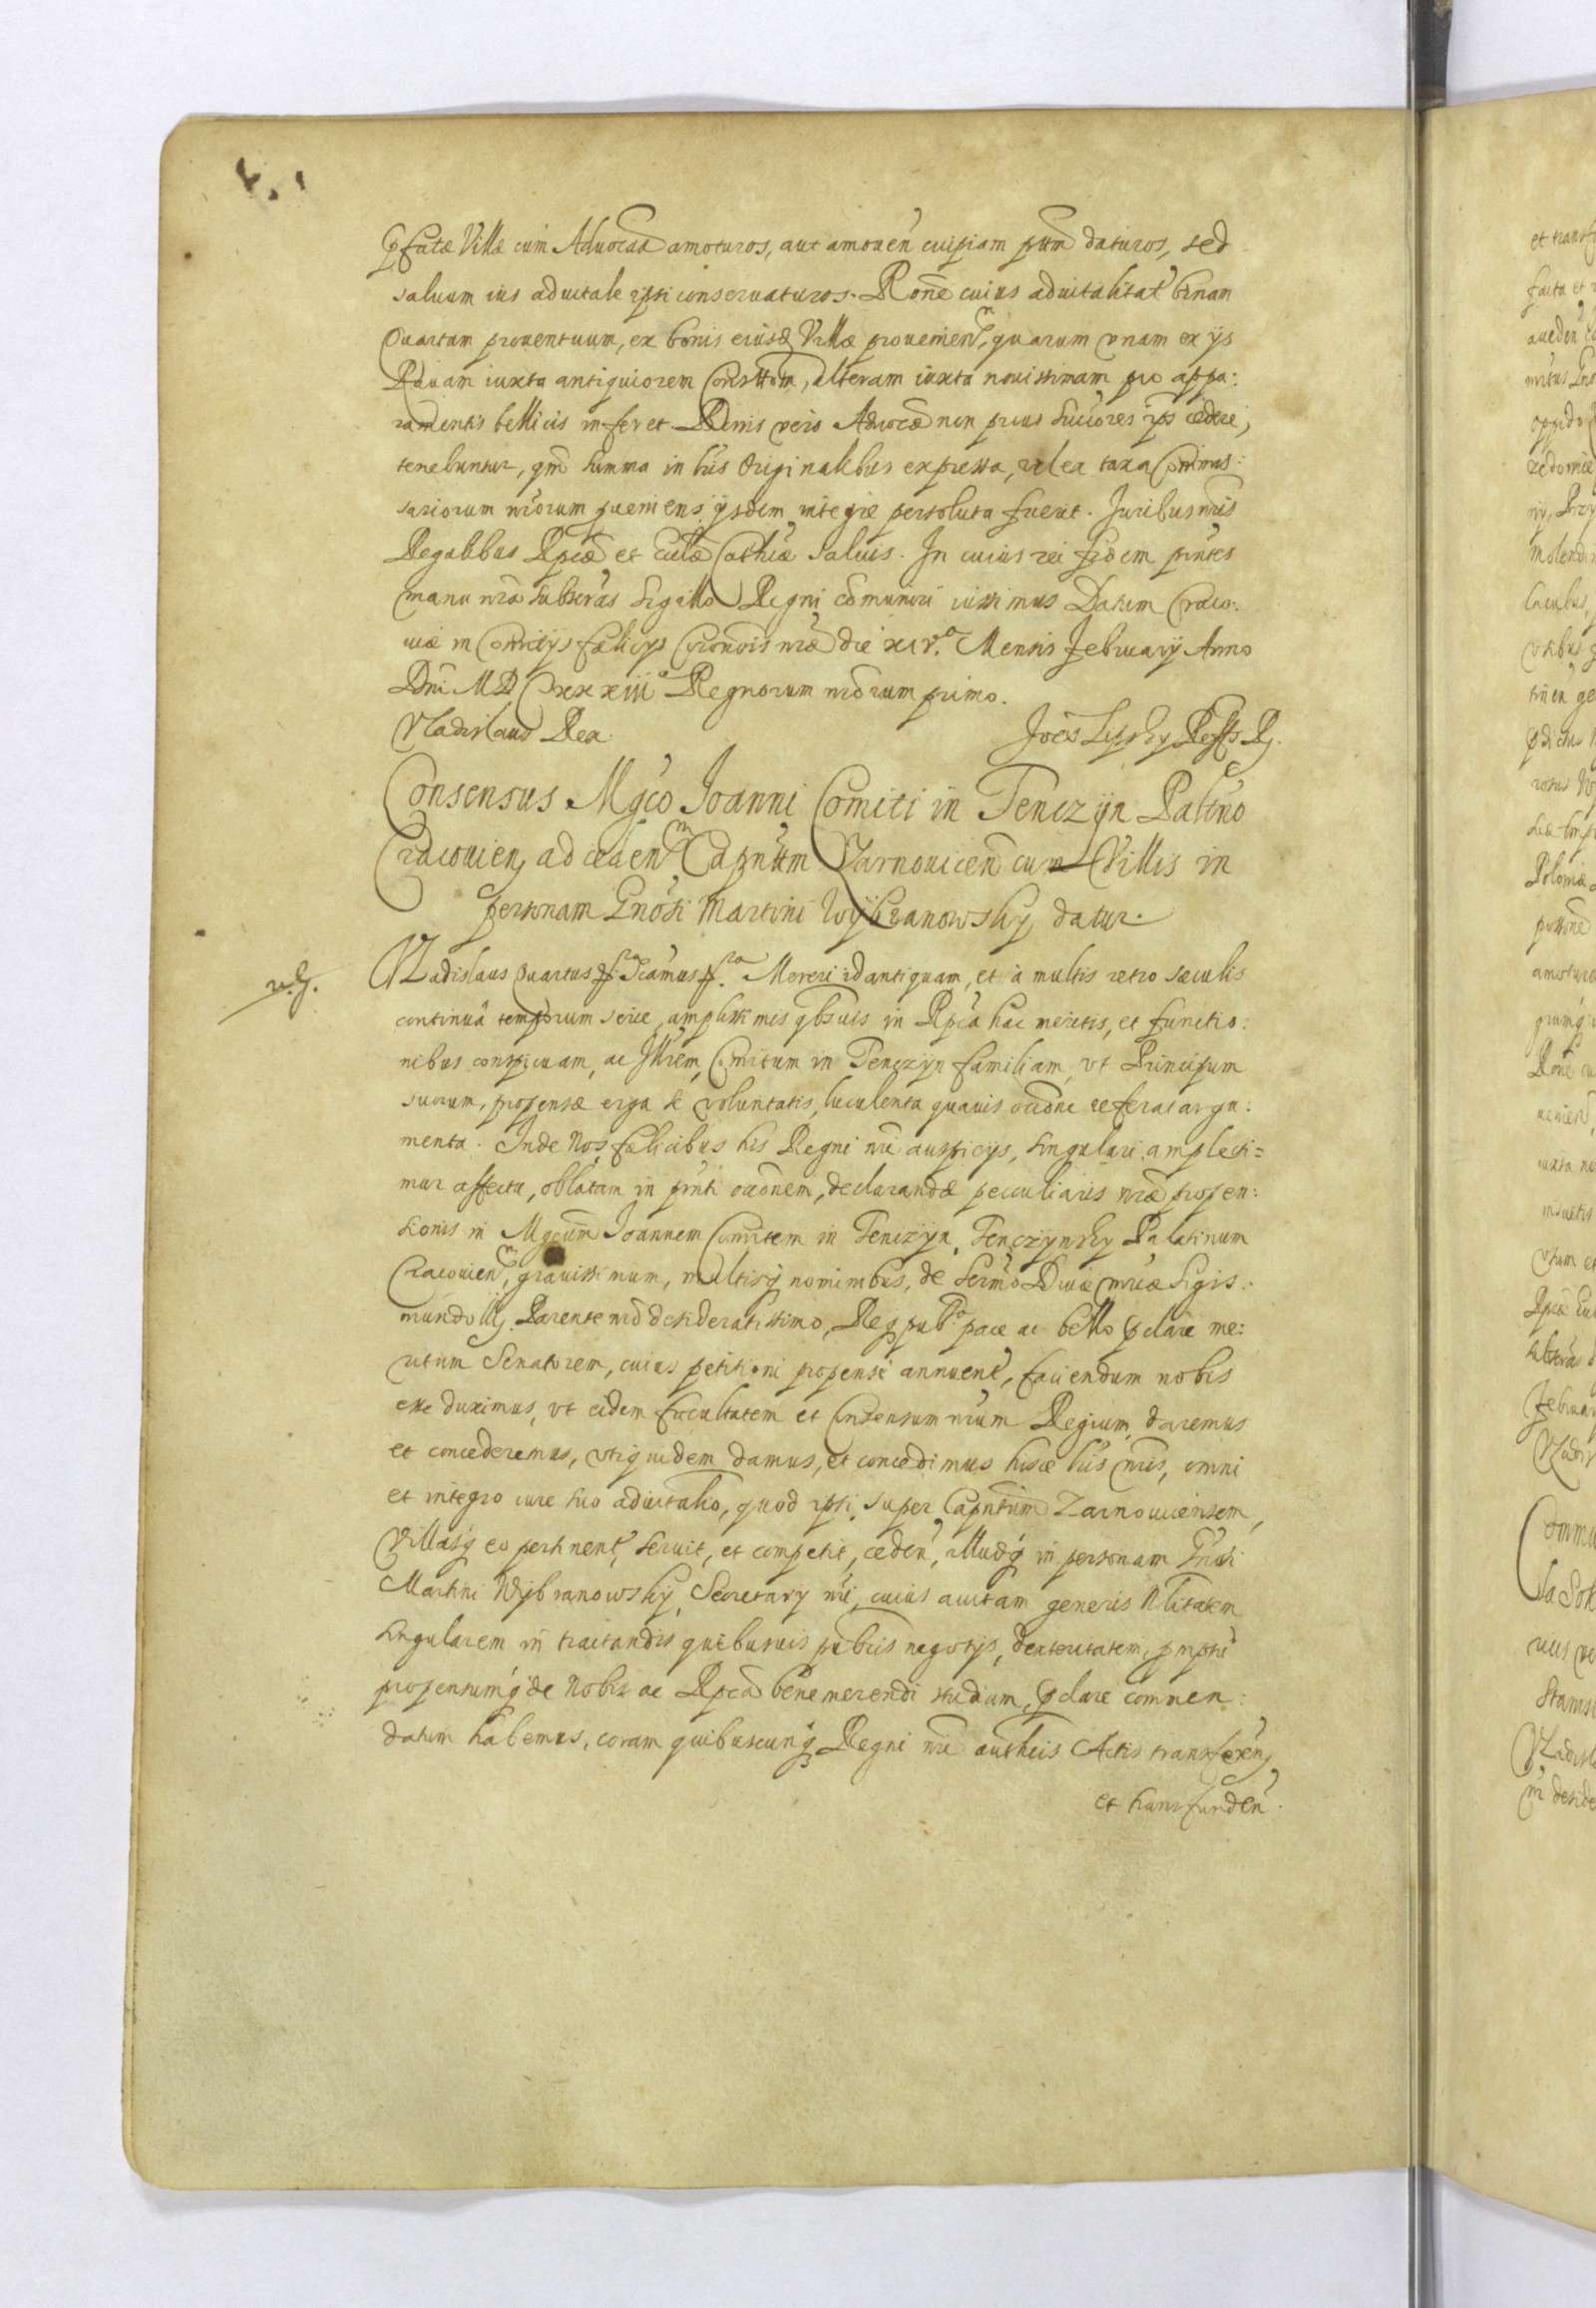 pfatæ Villæ cum Aduocaa amoturos, aut amouen cuipiam ptum daturos, sed
saluum ius aduitale ipsi conseruaturos. Rone cuius aduitalitat binam
Quartam prouentuum, ex bonis eiusd Villæ prouenien, quarum vnam ex ijs
Rauam iuxta antiquiorem Consttom, alteram iuxta nouissimam pro appa:
ramentis bellicis inferet. Bonis vero Aduocæ non prius succores ips cedere,
tenebuntur, qm summa in lris Originalibus expressa, vel ex taxa Commis:
sariorum nrorum proueniens ijsdem integre persoluta fuerit. Juribus nris
Regalibus Rpcæ et Ecclæ Cathcæ saluis. In cuius rei fidem pntes
manu nra subscras sigillo Regni comuniri iussimus Datum Craco:
uiæ in Comitijs fælicis Coronois nræ die xiv. Mensis February Anno
Dni MDCxxxiii Regnorum nrorum primo.
Vladislaus Rex. Joes Lipsky Reffs R.
Consensus Mgco Joanni Comiti in Tenczyn Palтno
Cracouien ad ceden Capnttm Zarnouicen cum Villis in
personam Gnosi Martini Wybranowsky datur.
n. g.
Vladislaus Quartus Scamus Mereri id antiquam, et à multis retro sæculis
continuâ temporum serie, amplissimis qbsuis in Rpca hac meritis, et functio:
nibus conspicuam, ac Illrem, Comitum in Tenczyn familiam, vt Principum
suorum, propensæ erga se voluntatis, luculenta quauis occone referat argu:
menta. Inde Nos fælicibus his Regni nri auspicijs, singulari amplecti=
mur affectu, oblatam in pnti occonem, declarandæ peculiaris nræ propen:
sionis in Mgcum Joannem Comitem in Tenczyn, Tenczynsky Palatinum
Cracouien, grauissimum, multisq nominibus, de Sermo Diuæ mriæ Sigis:
mundo III. Parente nro desideratissimo, Reqpub pace ac bello pclare me:
ritum Senatorem, cuius petitioni propense annuent, faciendum nobis
esse duximus, vt eidem facultatem et Consensum nrum Regium daremus
et concederemus, vtiquidem damus, et concedimus hisce lris nris, omni
et integro iure suo aduitalio, quod ipsi, super Capntum Zarnouicensem,
Villasq eo pertinent, seruit, et competit, ceden, illudq in personam Gnosi
Martini Wybranowsky, Secretary nri, cuius auitam generis Nlitatem
singularem in tractandis quibusuis publicis negotijs, dexteritatem, pmptu
propensumq de Nobis ac Rpca bene merendi studium, pclare commen:
datum habemus, coram quibuscunq Regni nri authcis Actis transferen,
et transfunden.